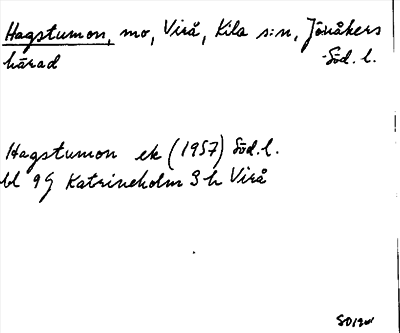 Hagstumon, mo, Virå, Kila s:n, Jönåkers
härad Söd. l.
Hagstumon ek (1957) Söd. l.
bl 9G Katrineholm 3 h Virå